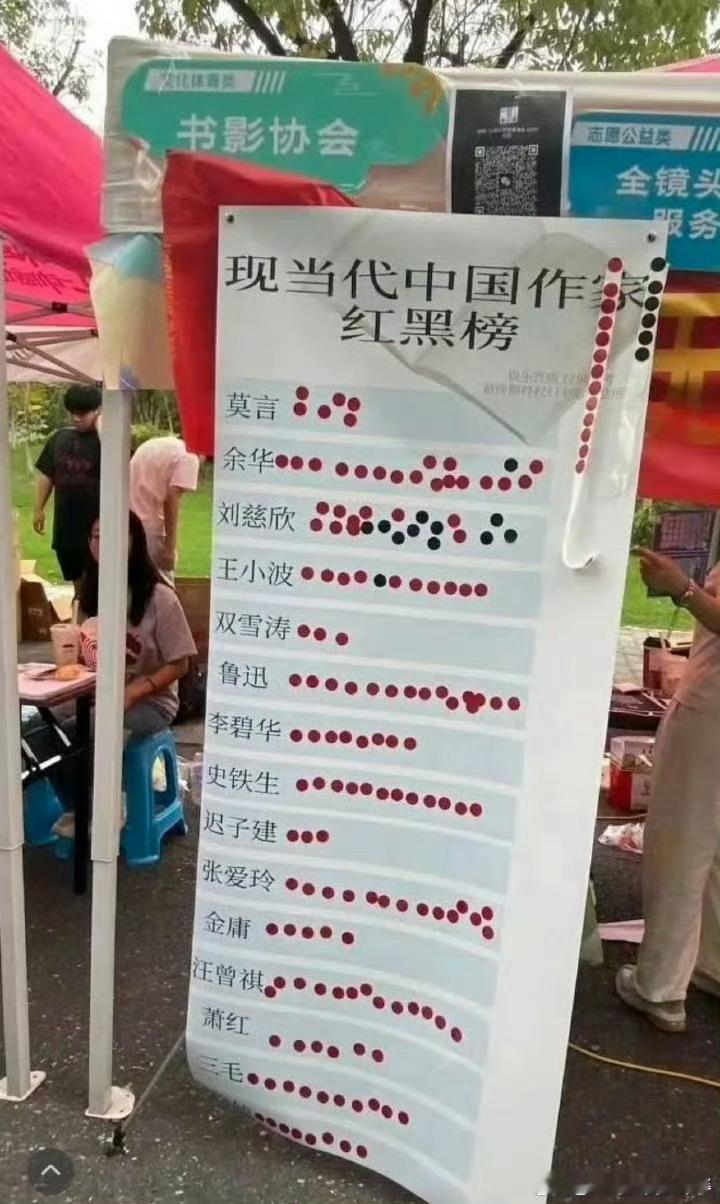 文化体育类
书影协会
志愿公益类
全镜头
服务
现当代中国作家
红黑榜
莫言
余华
刘慈欣
王小波
双雪涛
鲁迅
李碧华
史铁生
迟子建
张爱玲
金庸
汪曾祺
萧红
三毛